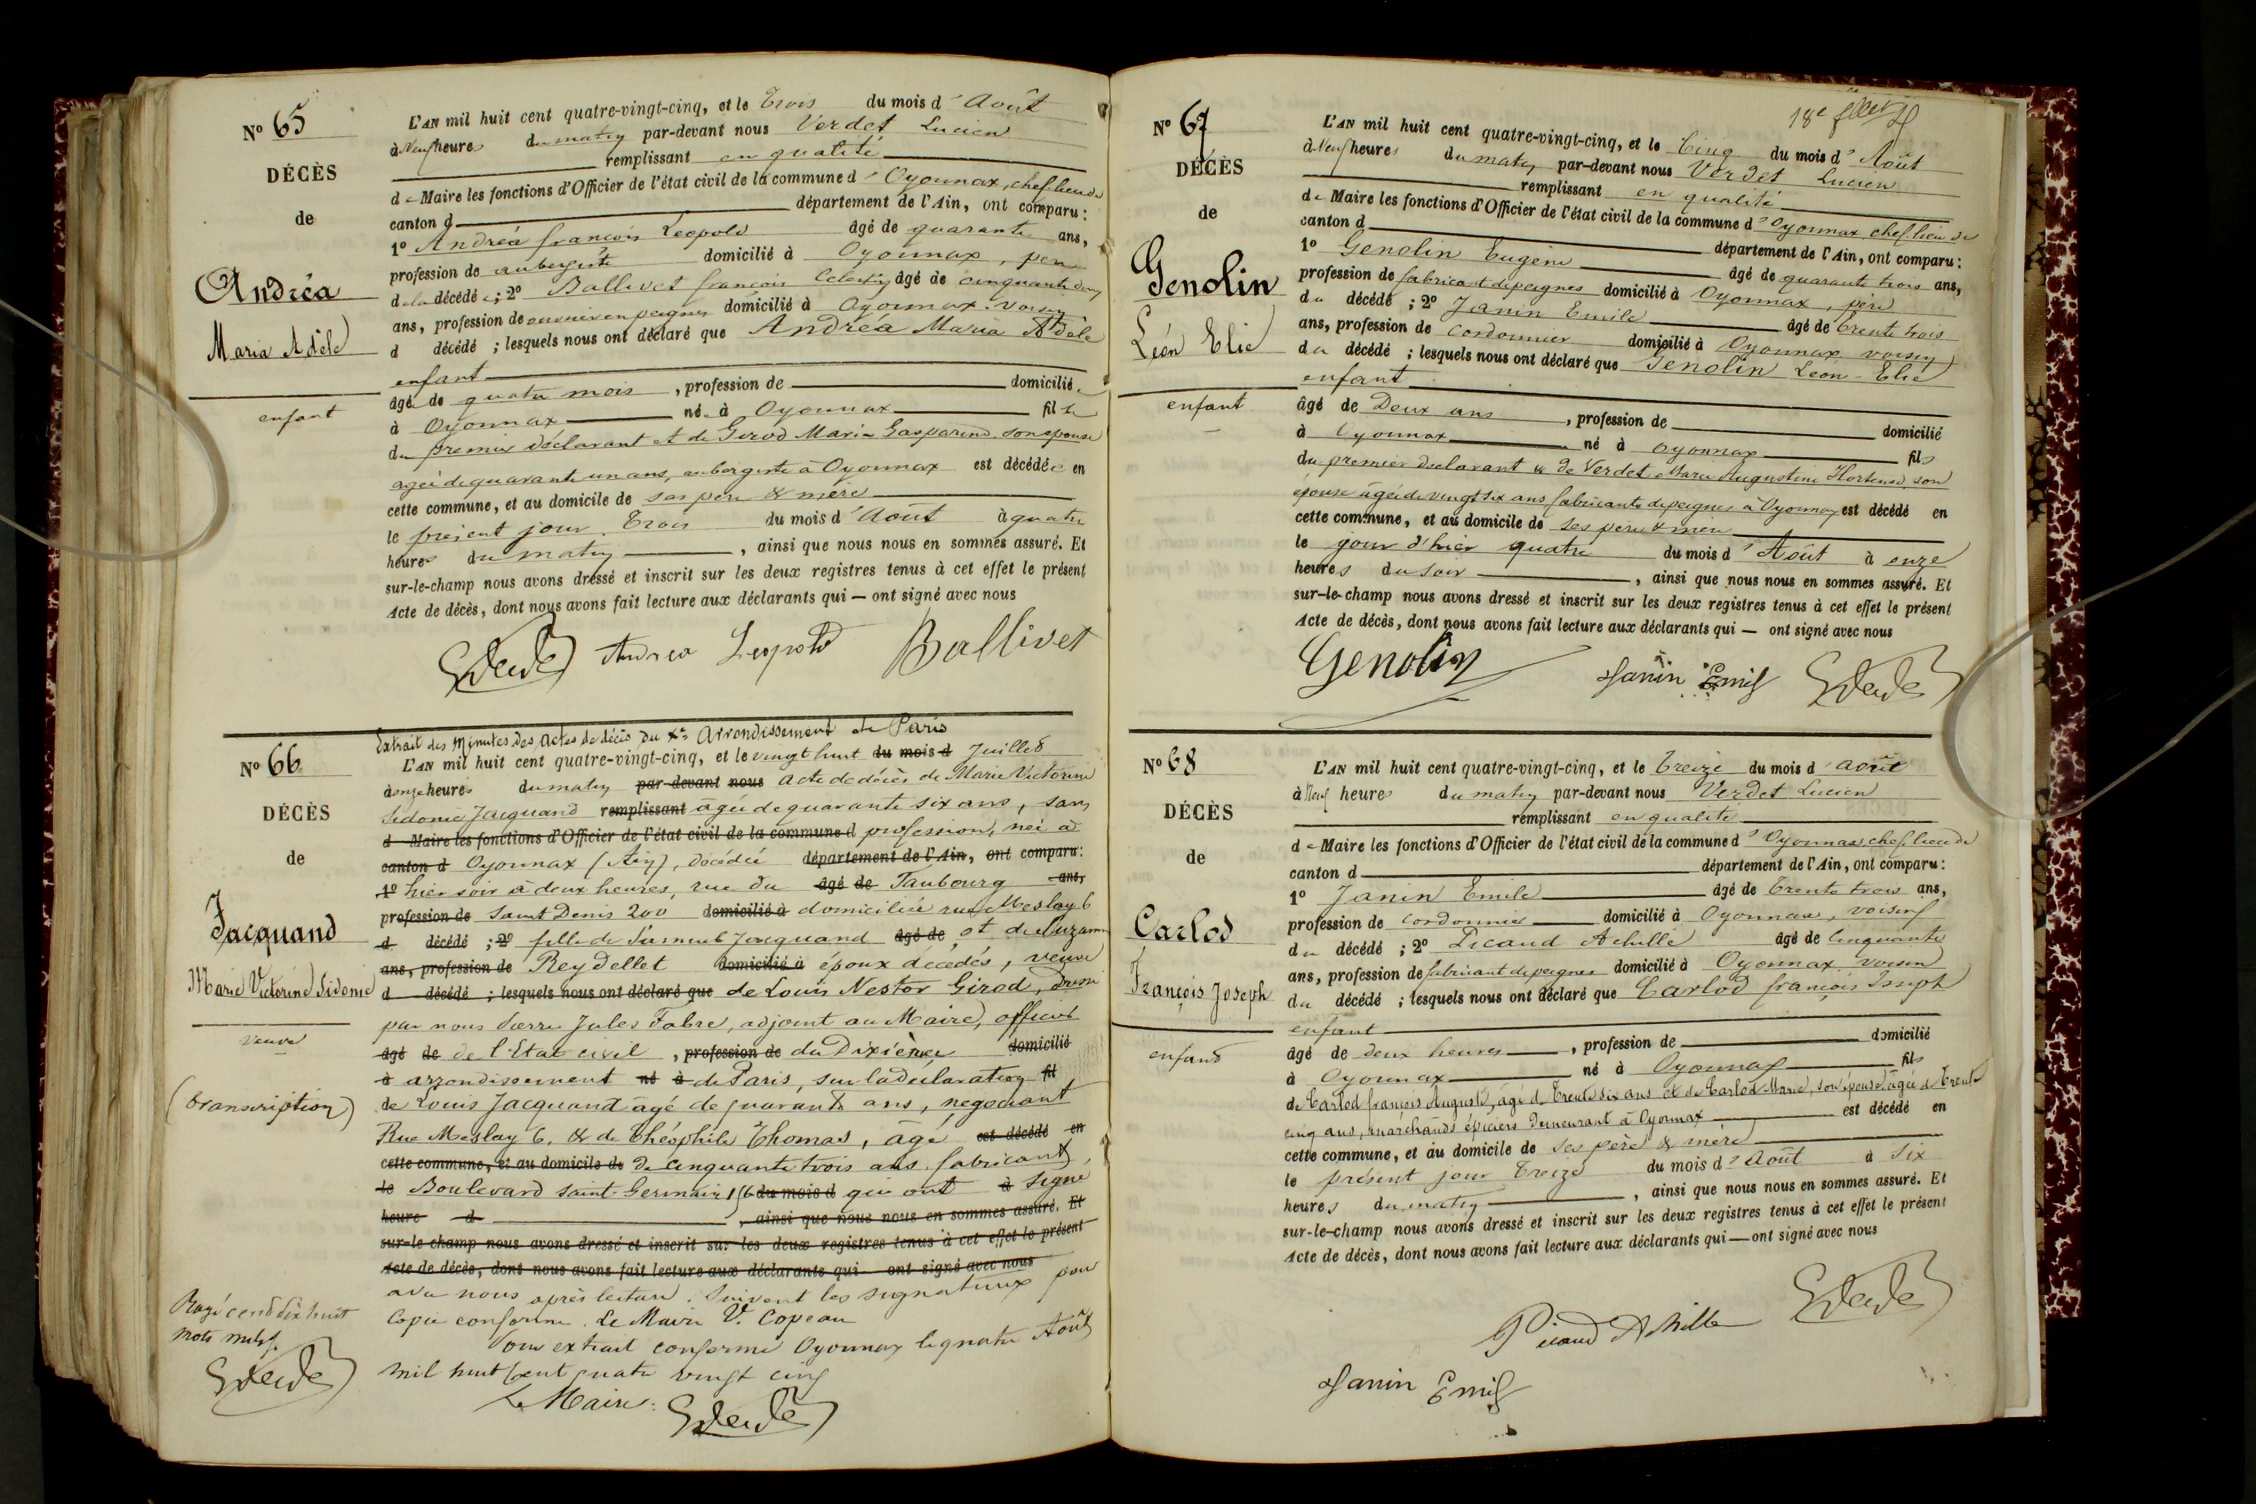 N° 65
DÉCÈS
de
Andréa
Maria Adèle
enfant
L'AN mil huit cent quatre-vingt-cinq, et le Trois du mois d'Août
à Neuf heures du matin par-devant nous Verdet Lucien
remplissant en qualité
de Maire les fonctions d'Officier de l'état civil de la commune d'Oyonnax, chef lieu de
canton d département de l'Ain, ont comparu :
1° Andréa françois Léopold âgé de quarante ans,
profession de aubergiste domicilié à Oyonnax, père
de la décédée ; 2° Ballivet françois Célestin âgé de cinquante deux
ans, profession de ouvrier en peignes domicilié à Oyonnax voisin
d décédé ; lesquels nous ont déclaré que Andréa Maria Adèle
enfant
âgée de quatre mois, profession de domiciliée
à Oyonnax née à Oyonnax fille
du premier déclarant et de Girod Marie Gasparine son épouse
agée de quarante un ans, aubergiste à Oyonnax est décédée en
cette commune, et au domicile de ses père & mère
le présent jour Trois du mois d'Août à quatre
heures du matin, ainsi que nous nous en sommes assuré. Et
sur-le-champ nous avons dressé et inscrit sur les deux registres tenus à cet effet le présent
Acte de décès, dont nous avons fait lecture aux déclarants qui — ont signé avec nous
Verdet Andréa Léopold Ballivet
N° 66
DÉCÈS
de
Jacquand
Marie Victorine Sidonie
veuve
(transcription)
Rayé cent dix huit
mots nuls.
Verdet
Extrait des Minutes des Actes de décès du Xe Arrondissement de Paris
L'AN mil huit cent quatre-vingt-cinq, et le vingt huit du mois d Juillet
à onze heures du matin par-devant nous acte de décès de Marie Victorine
Sidonie Jacquand remplissant âgée de quarante six ans, sans
d Maire les fonctions d'Officier de l'état civil de la commune d profession, née à
canton d Oyonnax (Ain), décédée département de l'Ain, ont comparu :
1° hier soir à deux heures, rue du âgé de Faubourg ans,
profession de Saint Denis 200 domicilié à domiciliée rue Meslay 6
d décédé ; 2° fille de Samuel Jacquand âgé de et de Suzanne
ans, profession de Reydellet domicilié à époux décédés, veuve
d décédé ; lesquels nous ont déclaré que de Louis Nestor Girod, dressé
par nous Pierre Jules Fabre, adjoint au Maire, officier
âgé de de l'Etat civil, profession de du Dixième domicilié
à arrondissement né à de Paris, sur la déclaration fil
de Louis Jacquand âgé de quarante ans, négociant
Rue Meslay 6. & de Théophile Thomas, âgé est décédé en
cette commune, et au domicile de de cinquante trois ans fabricant,
le Boulevard Saint-Germain du mois d qui ont à signé
heure d, ainsi que nous nous en sommes assuré. Et
sur-le-champ nous avons dressé et inscrit sur les deux registres tenus à cet effet le présent
Acte de décès, dont nous avons fait lecture aux déclarants qui ont signé avec nous
avec nous après lecture. Suivent les signatures pour
Copie conforme. Le Maire V. Copeau
Pour extrait conforme Oyonnax le quatre Août
mil huit cent quatre vingt cinq
Le Maire : Verdet
18e
N° 67
DÉCÈS
de
Genolin
Léon Elie
enfant
L'AN mil huit cent quatre-vingt-cinq, et le Cinq du mois d'Août
à Neuf heures du matin par-devant nous Verdet Lucien
remplissant en qualité
de Maire les fonctions d'Officier de l'état civil de la commune d'Oyonnax chef. lieu de
canton d département de l'Ain, ont comparu :
1° Genolin Eugène âgé de quarante trois ans,
profession de fabricant de peignes domicilié à Oyonnax, père
du décédé ; 2° Janin Emile âgé de Trente trois
ans, profession de cordonnier domicilié à Oyonnax voisin
du décédé ; lesquels nous ont déclaré que Genolin Léon-Elie
enfant
âgé de Deux ans, profession de domicilié
à Oyonnax né à Oyonnax fils
du premier déclarant & de Verdet Marie Augustine Hortense, son
épouse âgée de vingt six ans fabricante de peignes à Oyonnax est décédé en
cette commune, et au domicile de ses père & mère
le jour d'hier quatre du mois d'Août à onze
heures du soir, ainsi que nous nous en sommes assuré. Et
sur-le-champ nous avons dressé et inscrit sur les deux registres tenus à cet effet le présent
Acte de décès, dont nous avons fait lecture aux déclarants qui — ont signé avec nous
Genolin Janin Emile Verdet
N° 68
DÉCÈS
de
Carlod
François Joseph
enfant
L'AN mil huit cent quatre-vingt-cinq, et le Treize du mois d'août
à Neuf heures du matin par-devant nous Verdet Lucien
remplissant en qualité
de Maire les fonctions d'Officier de l'état civil de la commune d'Oyonnax, chef. lieu de
canton d département de l'Ain, ont comparu :
1° Janin Emile âgé de Trente trois ans,
profession de cordonnier domicilié à Oyonnax, voisin
du décédé ; 2° Picaud Achille âgé de Cinquante
ans, profession de fabricant de peignes domicilié à Oyonnax voisin
du décédé ; lesquels nous ont déclaré que Carlod françois Joseph
enfant
âgé de deux heures, profession de domicilié
à Oyonnax né à Oyonnax fils
de Carlod françois Auguste, âgé de Trente six ans et de Carlod Marie, son épouse âgée de Trente
cinq ans, marchands épiciers demeurant à Oyonnax est décédé en
cette commune, et au domicile de ses père & mère
le présent jour Treize du mois d'Août à Six
heures du matin, ainsi que nous nous en sommes assuré. Et
sur-le-champ nous avons dressé et inscrit sur les deux registres tenus à cet effet le présent
Acte de décès, dont nous avons fait lecture aux déclarants qui — ont signé avec nous
Picaud Achille Verdet
Janin Emile